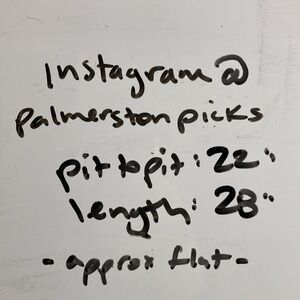 Instagram @
palmerston picks
pit to pit: 22"
length: 28"
- approx flat -